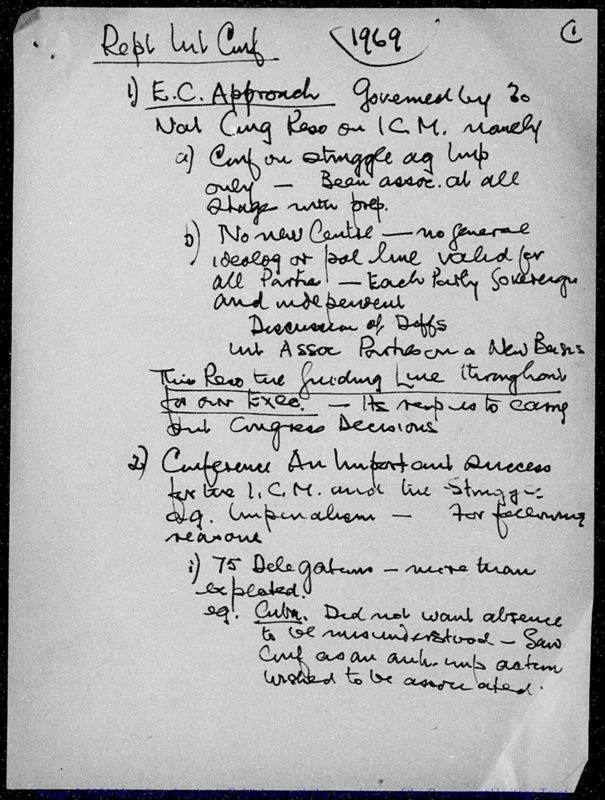 Rept Int Conf 1969 1
1) E.C. Approach Governed by 30
Nat Cong Reso on I.C.M. namely
a) Conf on struggle ag Imp
only — Been assoc. at all
stage with prep.
b) No new Centre — no general
ideolog or pol line valid for
all Parties — Each Party Sovereign
and independent
Discussion of Diffs
Int Assoc Parties on a New Basis
This Reso the Guiding Line throughout
for our Exec. — Its resp is to carry
out Congress Decisions
2) Conference An Important success
for the I.C.M. and the Struggle
ag. Imperialism — For following
reasons
i) 75 Delegations — more than
expected.
eg. Cuba. Did not want absence
to be misunderstood — Saw
Conf as an anti-imp action
wished to be associated.